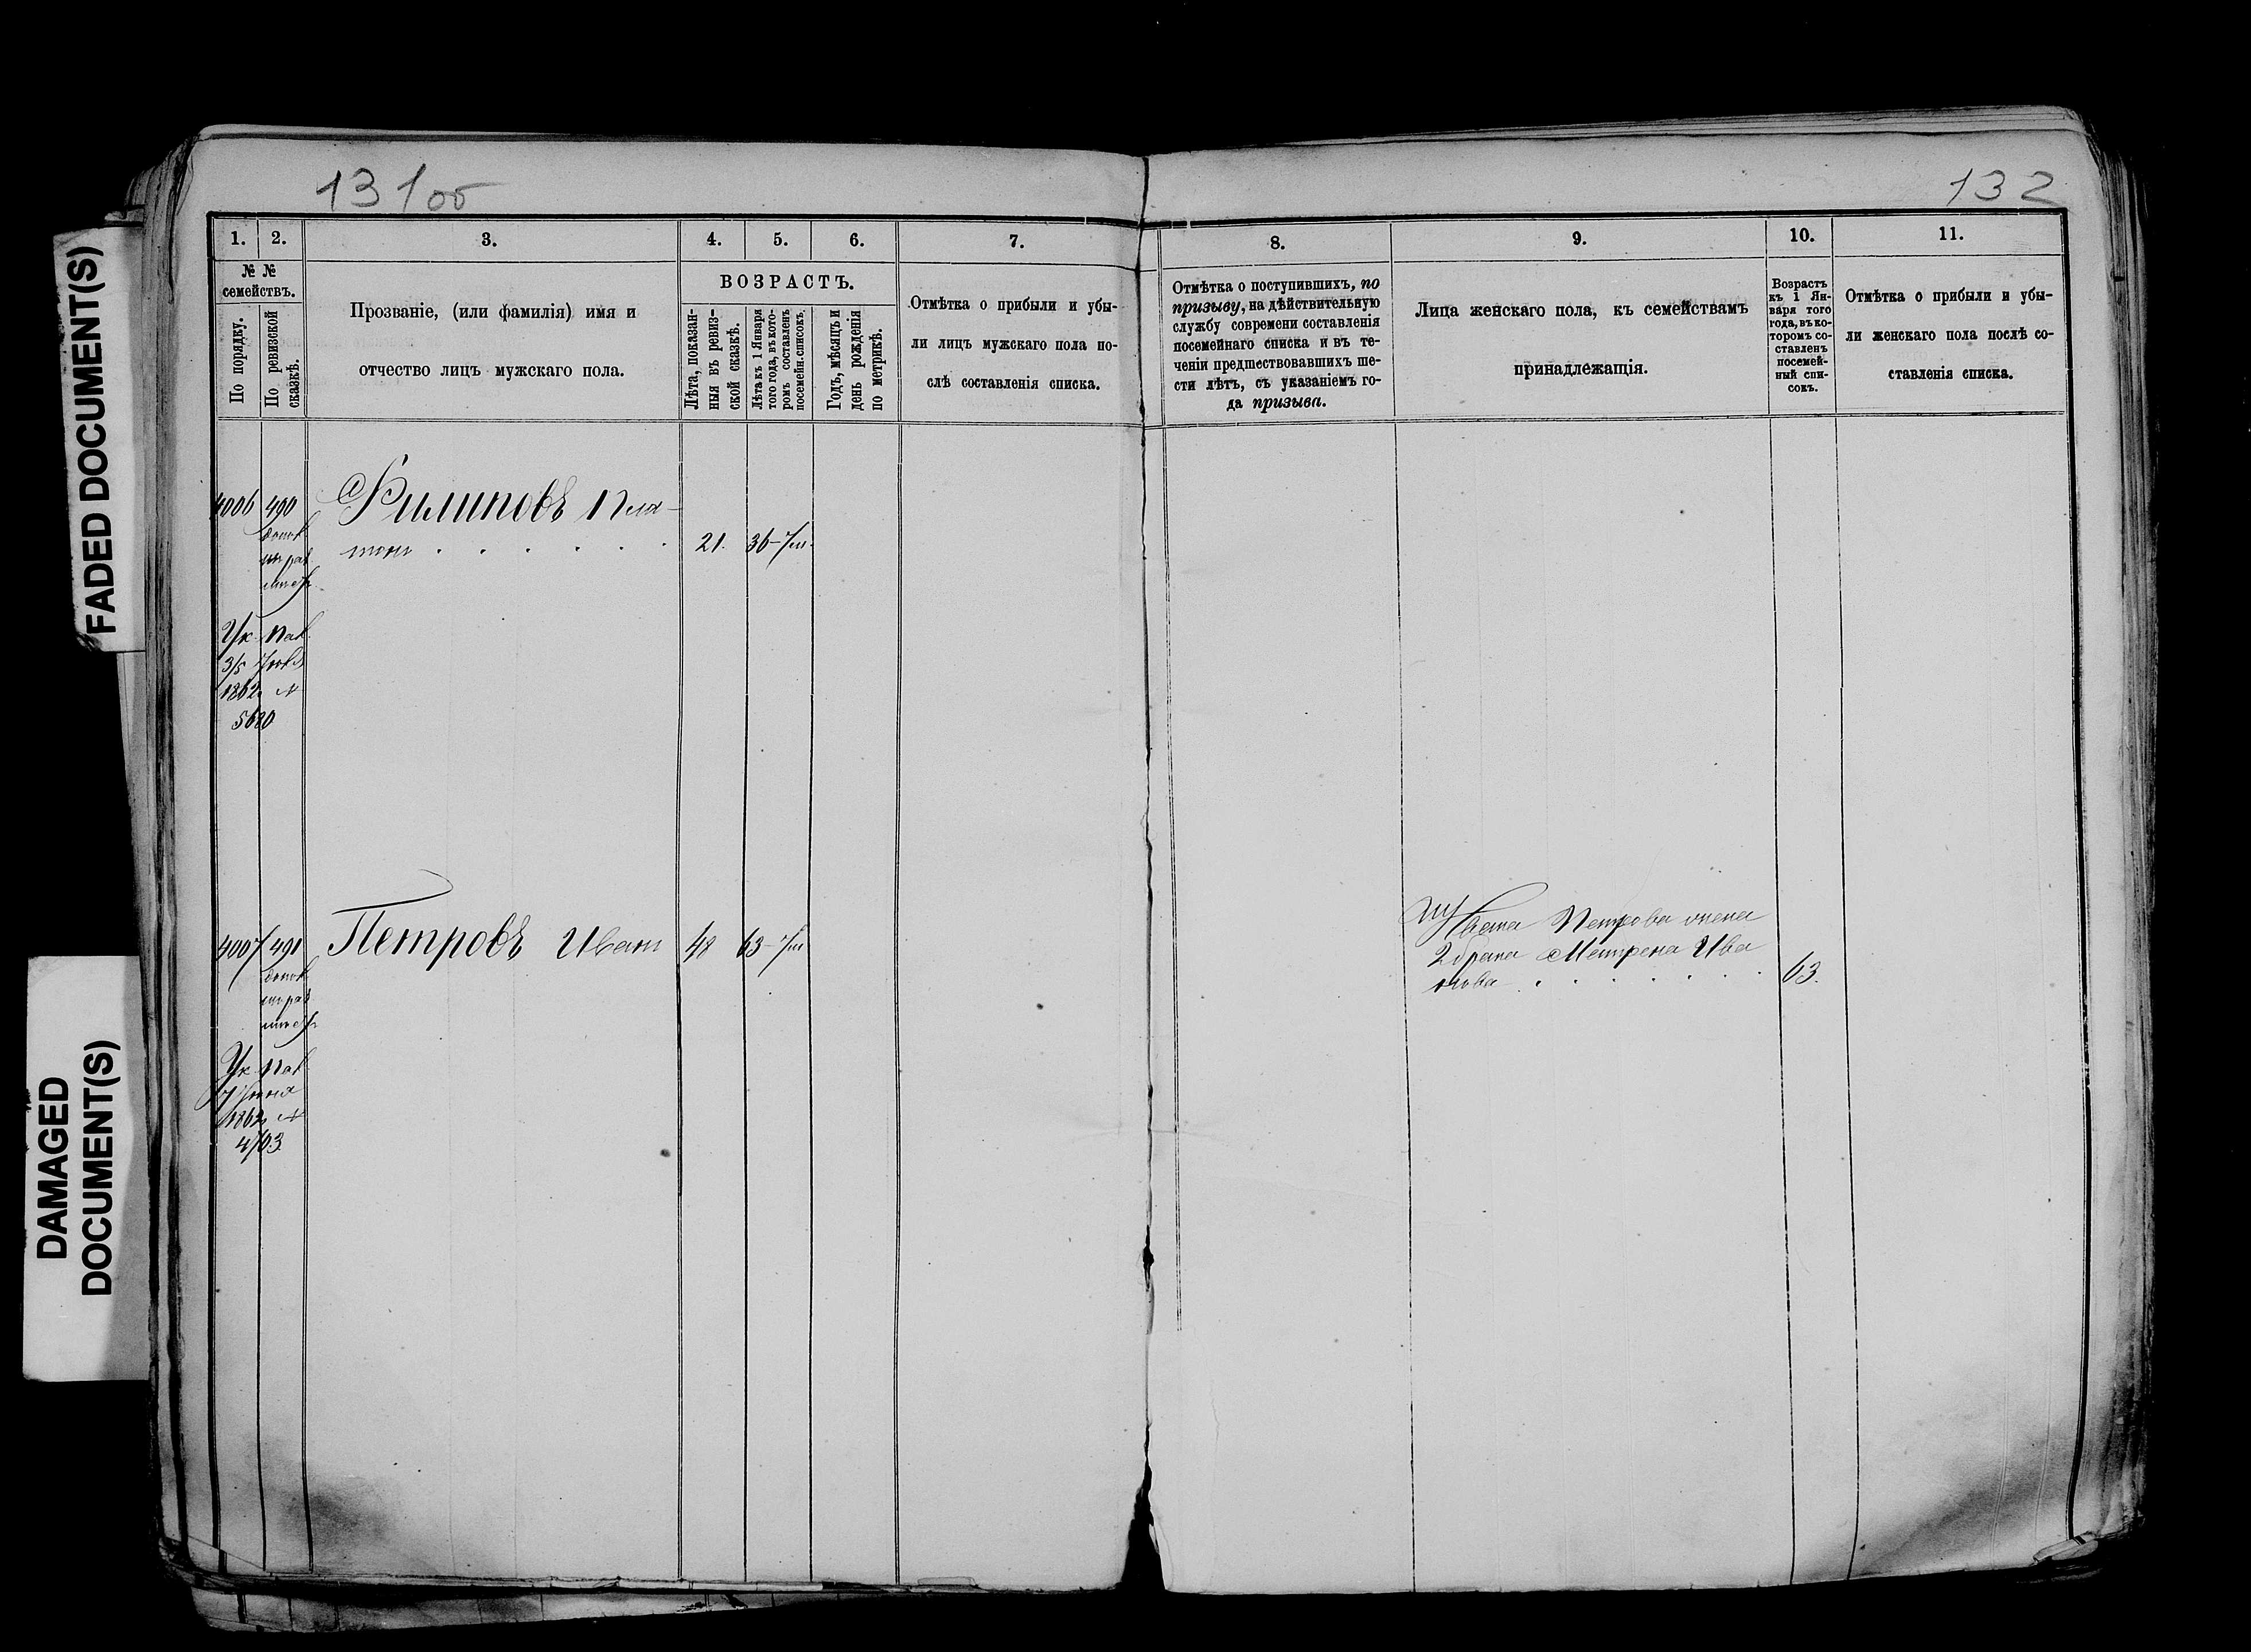 FADED DOCUMENT(S)
DAMAGED
DOCUMENT(S)
131об
1.
2.
3.
4.
5.
6.
7.
№ №
семействъ.
По порядку.
По ревизской
сказкѣ.
Прозваніе, (или фамилія) имя и
отчество лицъ мужскаго пола.
ВОЗРАСТЪ.
Лѣта, показан-
ныя въ ревиз-
ской сказкѣ.
Лѣта къ 1 Января
того года, въ кото-
ромъ составленъ
посемейн. списокъ.
Годъ, мѣсяцъ и
день рожденія
по метрикѣ.
Отмѣтка о прибыли и убы-
ли лицъ мужскаго пола по-
слѣ составленія списка.
4006 490 Филиповъ Пла-
тонъ 21. 36
Ук. Пал.
3/5
1862 №
5680
4007 491 Петровъ Иванъ 48 63
Ук. Пал
7 Іюня
1862 №
4703
132
8.
9.
10.
11.
Отмѣтка о поступившихъ, по
призыву, на дѣйствительную
службу современи составленія
посемейнаго списка и въ те-
ченіи предшествовавшихъ ше-
сти лѣтъ, съ указаніемъ го-
да призыва.
Лица женскаго пола, къ семействамъ
принадлежащія.
Возрастъ
къ 1 Ян-
варя того
года, въ ко-
торомъ со-
ставленъ
посемей-
ный спи-
сокъ.
Отмѣтка о прибыли и убы-
ли женскаго пола послѣ со-
ставленія списка.
Ивана Петрова жена
2 брака Матрена Ива
нова 63.